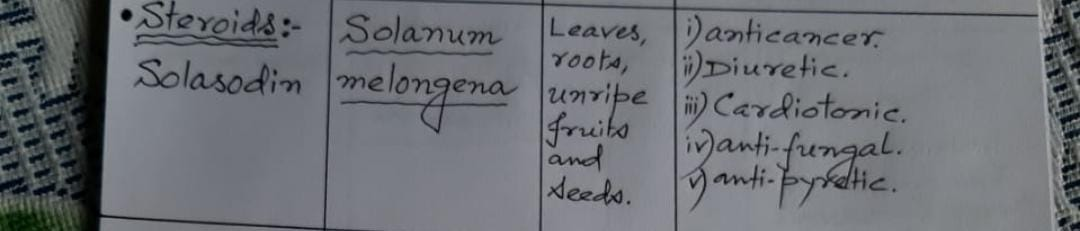 • Steroids:-
Solasodin
Solanum
melongena
Leaves,
roots,
unripe
fruits
and
seeds.
i) anticancer.
ii) Diuretic.
iii) Cardiotonic.
iv) anti-fungal.
v) anti-pyretic.